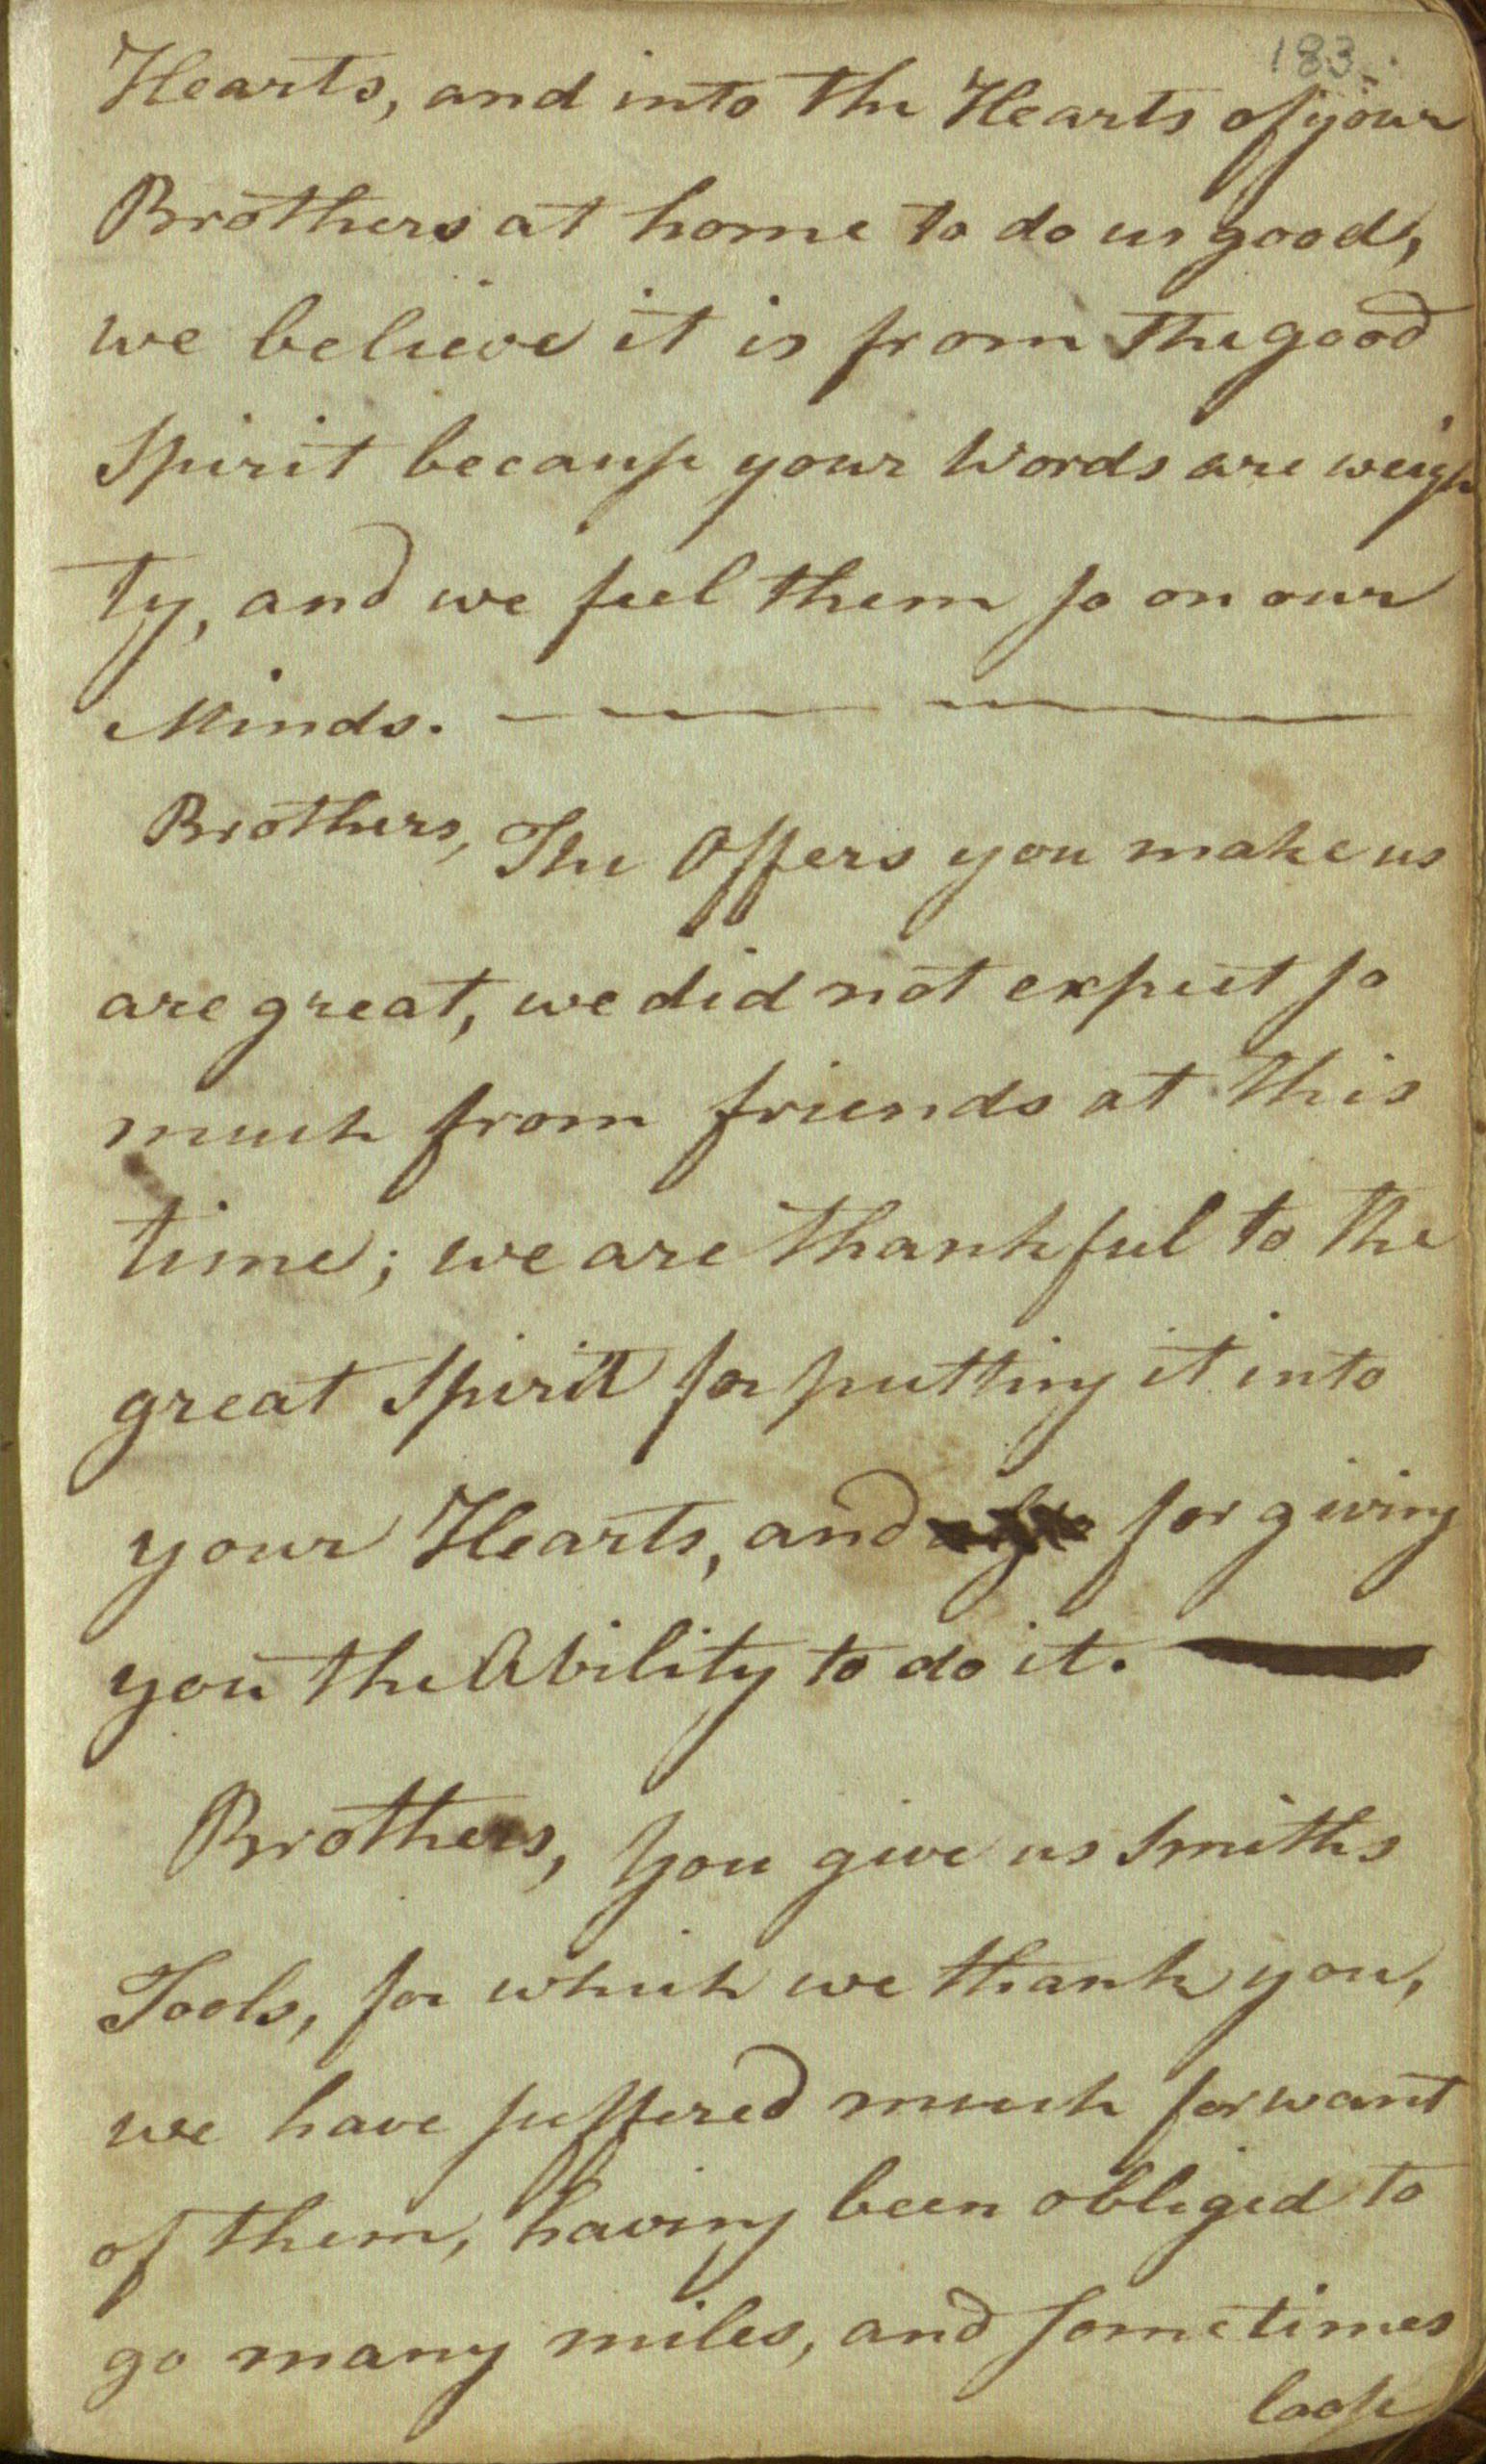 183
Hearts, and into the Hearts of your
Brothers at home to do us good,
we believe it is from the good
Spirit because your Words are weigh
ty, and we feel them so on our
Minds.
Brothers, The Offers you make us
are great, we did not expect so
much from friends at this
time; we are thankful to the
great Spirit for putting it into
your Hearts, and for giving
you the Ability to do it.
Brothers, You give us Smiths
Tools, for which we thank you,
we have suffered much for want
of them, having been obliged to
go many miles, and sometimes